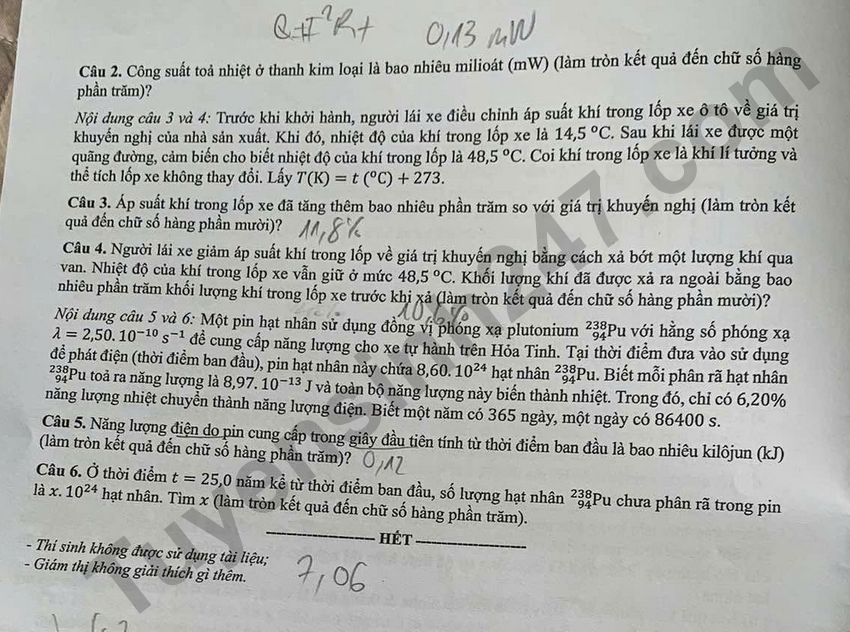 Q=I²Rt 0,13 mW
Câu 2. Công suất toả nhiệt ở thanh kim loại là bao nhiêu milioát (mW) (làm tròn kết quả đến chữ số hàng
phần trăm)?
Nội dung câu 3 và 4: Trước khi khởi hành, người lái xe điều chỉnh áp suất khí trong lốp xe ô tô về giá trị
khuyến nghị của nhà sản xuất. Khi đó, nhiệt độ của khí trong lốp xe là 14,5 °C. Sau khi lái xe được một
quãng đường, cảm biến cho biết nhiệt độ của khí trong lốp là 48,5 °C. Coi khí trong lốp xe là khí lí tưởng và
thể tích lốp xe không thay đổi. Lấy T(K) = t (°C) + 273.
Câu 3. Áp suất khí trong lốp xe đã tăng thêm bao nhiêu phần trăm so với giá trị khuyến nghị (làm tròn kết
quả đến chữ số hàng phần mười)? 11,8%
Câu 4. Người lái xe giảm áp suất khí trong lốp về giá trị khuyến nghị bằng cách xả bớt một lượng khí qua
van. Nhiệt độ của khí trong lốp xe vẫn giữ ở mức 48,5 °C. Khối lượng khí đã được xả ra ngoài bằng bao
nhiêu phần trăm khối lượng khí trong lốp xe trước khi xả (làm tròn kết quả đến chữ số hàng phần mười)?
10,6%
Nội dung câu 5 và 6: Một pin hạt nhân sử dụng đồng vị phóng xạ plutonium ²³⁸₉₄Pu với hằng số phóng xạ
λ = 2,50. 10⁻¹⁰ s⁻¹ để cung cấp năng lượng cho xe tự hành trên Hỏa Tinh. Tại thời điểm đưa vào sử dụng
để phát điện (thời điểm ban đầu), pin hạt nhân này chứa 8,60. 10²⁴ hạt nhân ²³⁸₉₄Pu. Biết mỗi phân rã hạt nhân
²³⁸₉₄Pu toả ra năng lượng là 8,97. 10⁻¹³ J và toàn bộ năng lượng này biến thành nhiệt. Trong đó, chỉ có 6,20%
năng lượng nhiệt chuyển thành năng lượng điện. Biết một năm có 365 ngày, một ngày có 86400 s.
Câu 5. Năng lượng điện do pin cung cấp trong giây đầu tiên tính từ thời điểm ban đầu là bao nhiêu kilôjun (kJ)
(làm tròn kết quả đến chữ số hàng phần trăm)? 0,12
Câu 6. Ở thời điểm t = 25,0 năm kể từ thời điểm ban đầu, số lượng hạt nhân ²³⁸₉₄Pu chưa phân rã trong pin
là x. 10²⁴ hạt nhân. Tìm x (làm tròn kết quả đến chữ số hàng phần trăm).
HẾT
- Thí sinh không được sử dụng tài liệu;
- Giám thị không giải thích gì thêm.
7,06
Tuyensinh247.com